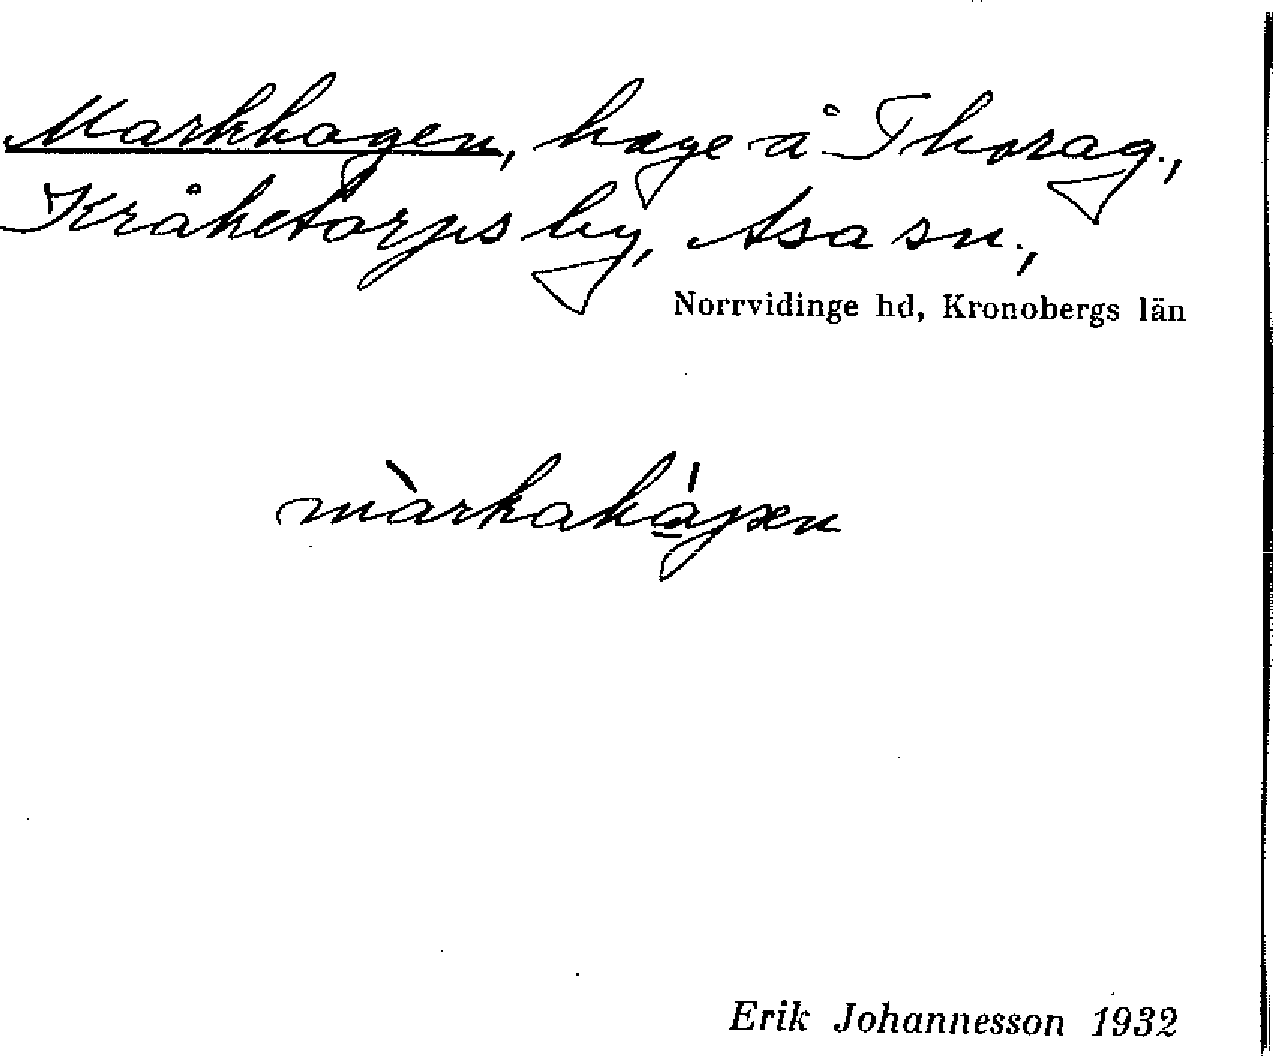 Markhagen, hage å Thorag.,
Kråketorps by, Asa sn.,
Norrvidinge hd, Kronobergs län
màrkahágen
Erik Johannesson 1932